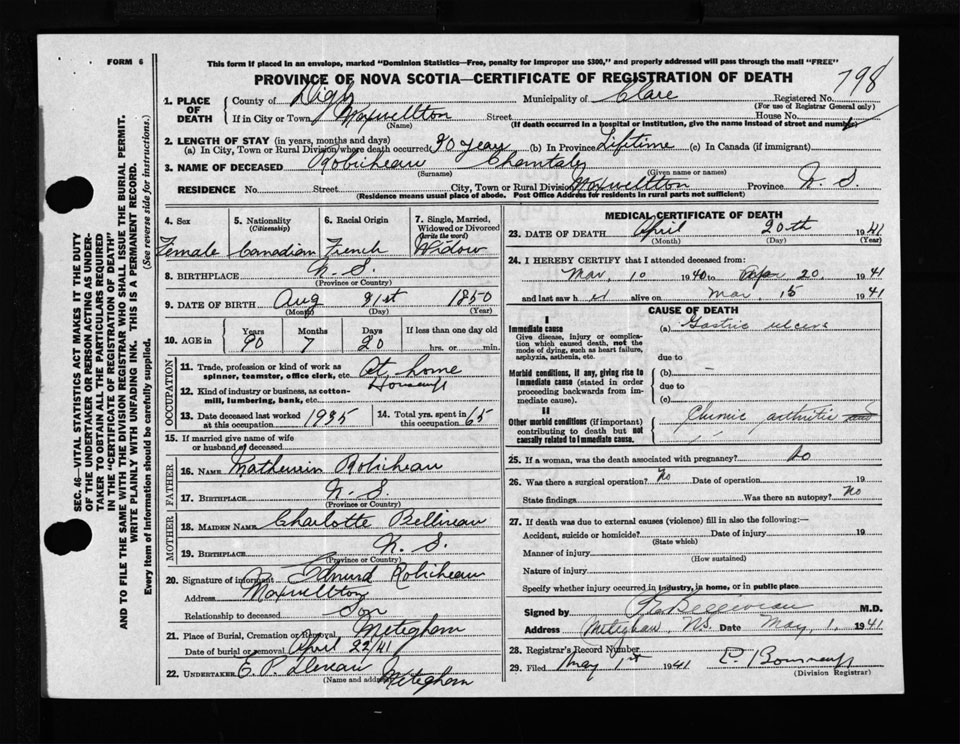 FORM 6
This form if placed in an envelope, marked "Dominion Statistics—Free, penalty for improper use $300," and properly addressed will pass through the mail "FREE"
PROVINCE OF NOVA SCOTIA—CERTIFICATE OF REGISTRATION OF DEATH
798
1. PLACE OF DEATH
County of Digby Municipality of Clare Registered No.
(For use of Registrar General only)
If in City or Town Maxwellton Street House No.
(Name) (If death occurred in a hospital or institution, give the name instead of street and number)
2. LENGTH OF STAY (in years, months and days)
(a) In City, Town or Rural Division where death occurred 90 years (b) In Province Lifetime (c) In Canada (if immigrant)
3. NAME OF DECEASED Robicheau
(Surname) (Given name or names)
RESIDENCE No. Street City, Town or Rural Division Maxwellton Province N. S.
(Residence means usual place of abode. Post Office Address for residents in rural parts not sufficient)
4. Sex
Female
5. Nationality
(Citizenship)
Canadian
6. Racial Origin
French
7. Single, Married, Widowed or Divorced
(write the word)
Widow
8. BIRTHPLACE N. S.
(Province or Country)
9. DATE OF BIRTH Aug 31st 1850
(Month) (Day) (Year)
10. AGE in
Years Months Days If less than one day old
90 7 20 hrs. or min.
OCCUPATION
11. Trade, profession or kind of work as spinner, teamster, office clerk, etc. At home
12. Kind of industry or business, as cotton-mill, lumbering, bank, etc. Housewife
13. Date deceased last worked at this occupation 1935
14. Total yrs. spent in this occupation 65
15. If married give name of wife or husband of deceased
FATHER
16. NAME Mathurin Robicheau
17. BIRTHPLACE N. S.
(Province or Country)
MOTHER
18. MAIDEN NAME Charlotte
19. BIRTHPLACE N. S.
(Province or Country)
20. Signature of informant Edmund Robicheau
Address Maxwellton
Relationship to deceased Son
21. Place of Burial, Cremation or Removal Meteghan
Date of burial or removal April 22/41
22. UNDERTAKER E. P.
(Name and address) Meteghan
MEDICAL CERTIFICATE OF DEATH
23. DATE OF DEATH April 20th 1941
(Month) (Day) (Year)
24. I HEREBY CERTIFY that I attended deceased from:
Mar, 10 1940 to Apr 20, 1941
and last saw her alive on Mar, 15 1941
CAUSE OF DEATH
I
Immediate cause
Give disease, injury or complication which caused death, not the mode of dying, such as heart failure, asphyxia, asthenia, etc.
(a) Gastric ulcers
due to
Morbid conditions, if any, giving rise to immediate cause (stated in order proceeding backwards from immediate cause).
(b)
due to
(c)
II
Other morbid conditions (if important) contributing to death but not causally related to immediate cause.
Chronic arthritis
25. If a woman, was the death associated with pregnancy? No
26. Was there a surgical operation? No Date of operation 19
State findings Was there an autopsy? No
27. If death was due to external causes (violence) fill in also the following:—
Accident, suicide or homicide? Date of injury 19
(State which)
Manner of injury
(How sustained)
Nature of injury
Specify whether injury occurred in industry, in home, or in public place
Signed by M.D.
Address Meteghan, N.S. Date May, 1, 1941
28. Registrar's Record Number
29. Filed May 1st 1941
(Division Registrar)
SEC. 46—VITAL STATISTICS ACT MAKES IT THE DUTY
OF THE UNDERTAKER OR PERSON ACTING AS UNDER-
TAKER TO OBTAIN ALL THE PARTICULARS REQUIRED
IN THE "CERTIFICATE OF REGISTRATION OF DEATH"
AND TO FILE THE SAME WITH THE DIVISION REGISTRAR WHO SHALL ISSUE THE BURIAL PERMIT.
WRITE PLAINLY WITH UNFADING INK. THIS IS A PERMANENT RECORD.
Every item of information should be carefully supplied. (See reverse side for instructions.)